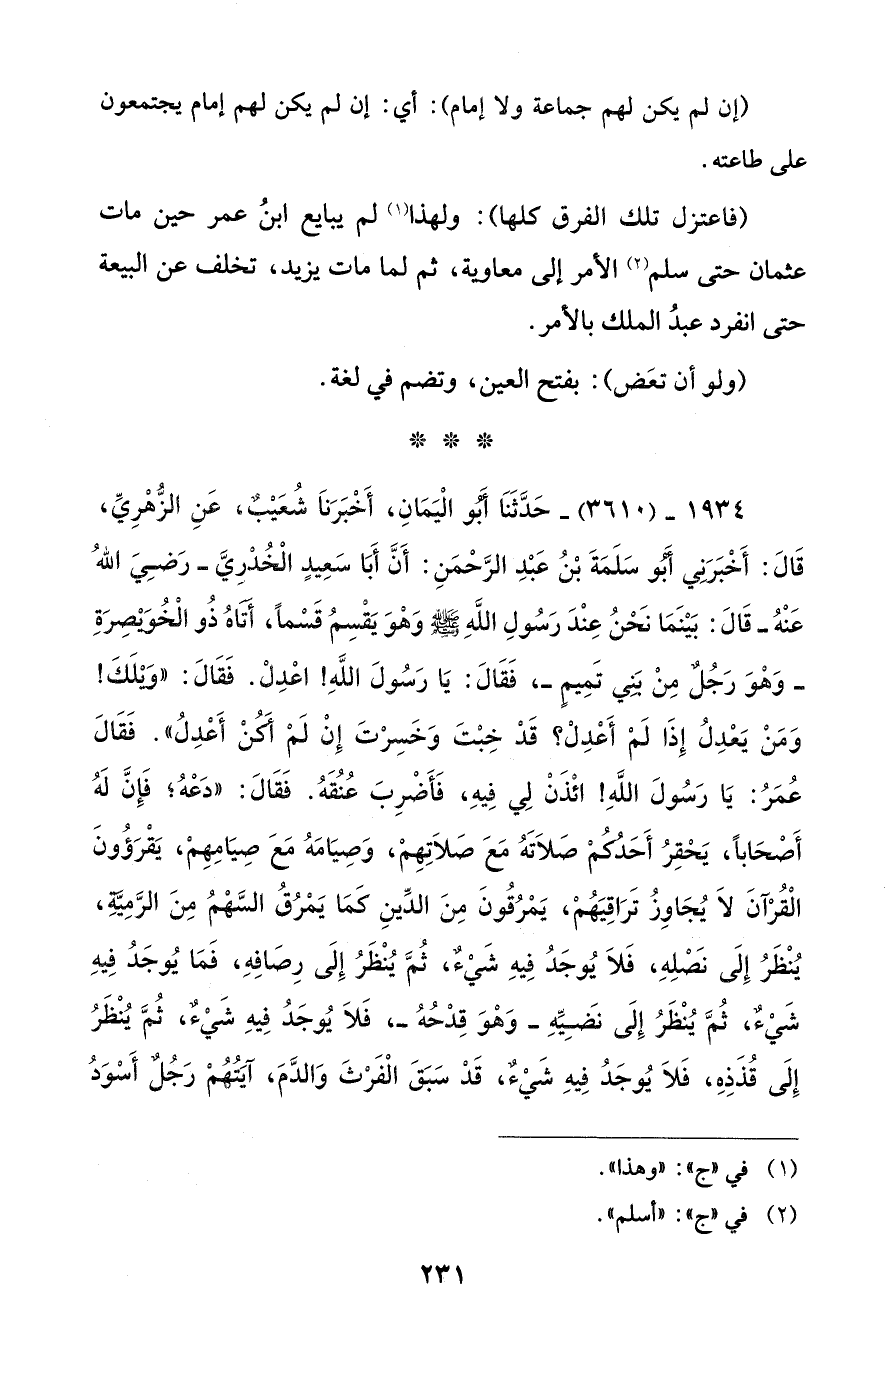 (إن لم يكن لهم جماعة ولا إمام): أي: إن لم يكن لهم إمام يجتمعون
على طاعته.
(فاعتزل تلك الفرق كلها): ولهذا(١) لم يبايع ابنُ عمر حين مات
عثمان حتى سلم(٢) الأمر إلى معاوية، ثم لما مات يزيد، تخلف عن البيعة
حتى انفرد عبدُ الملك بالأمر.
(ولو أن تعَض): بفتح العين، وتضم في لغة.
* * *
١٩٣٤ ـ (٣٦١٠) ـ حَدَّثَنَا أَبُو الْيَمَانِ، أَخْبَرَنَا شُعَيْبٌ، عَنِ الزُّهْرِيِّ،
قَالَ: أَخْبَرَنِي أَبُو سَلَمَةَ بْنُ عَبْدِ الرَّحْمَنِ: أَنَّ أَبَا سَعِيدٍ الْخُدْرِيَّ ـ رَضِيَ اللهُ
عَنْهُ ـ قَالَ: بَيْنَمَا نَحْنُ عِنْدَ رَسُولِ اللَّهِ ﷺ وَهْوَ يَقْسِمُ قَسْماً، أَتَاهُ ذُو الْخُوَيْصِرَةِ
ـ وَهْوَ رَجُلٌ مِنْ بَنِي تَمِيمٍ ـ، فَقَالَ: يَا رَسُولَ اللَّهِ! اعْدِلْ. فَقَالَ: «وَيْلَكَ!
وَمَنْ يَعْدِلُ إِذَا لَمْ أَعْدِلْ؟ قَدْ خِبْتَ وَخَسِرْتَ إِنْ لَمْ أَكُنْ أَعْدِلُ». فَقَالَ
عُمَرُ: يَا رَسُولَ اللَّهِ! ائْذَنْ لِي فِيهِ، فَأَضْرِبَ عُنُقَهُ. فَقَالَ: «دَعْهُ؛ فَإِنَّ لَهُ
أَصْحَاباً، يَحْقِرُ أَحَدُكُمْ صَلاَتَهُ مَعَ صَلاَتِهِمْ، وَصِيَامَهُ مَعَ صِيَامِهِمْ، يَقْرَؤُونَ
الْقُرْآنَ لاَ يُجَاوِزُ تَرَاقِيَهُمْ، يَمْرُقُونَ مِنَ الدِّينِ كَمَا يَمْرُقُ السَّهْمُ مِنَ الرَّمِيَّةِ،
يُنْظَرُ إِلَى نَصْلِهِ، فَلاَ يُوجَدُ فِيهِ شَيْءٌ، ثُمَّ يُنْظَرُ إِلَى رِصَافِهِ، فَمَا يُوجَدُ فِيهِ
شَيْءٌ، ثُمَّ يُنْظَرُ إِلَى نَضِيِّهِ ـ وَهْوَ قِدْحُهُ ـ، فَلاَ يُوجَدُ فِيهِ شَيْءٌ، ثُمَّ يُنْظَرُ
إِلَى قُذَذِهِ، فَلاَ يُوجَدُ فِيهِ شَيْءٌ، قَدْ سَبَقَ الْفَرْثَ وَالدَّمَ، آيَتُهُمْ رَجُلٌ أَسْوَدُ
(١) في «ج»: «وهذا».
(٢) في «ج»: «أسلم».
٢٣١